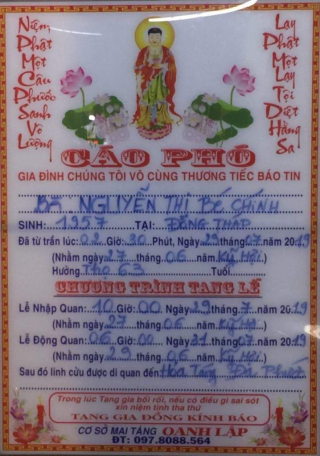 Niệm
Phật
Một
Câu
Phước
Sanh
Vô
Lượng
Lạy
Phật
Một
Lạy
Tội
Diệt
Hằng
Sa
CÁO PHÓ
GIA ĐÌNH CHÚNG TÔI VÔ CÙNG THƯƠNG TIẾC BÁO TIN
Bà NGUYỄN THỊ BÉ CHÍNH
SINH: 1957 TẠI: ĐỒNG THÁP
Đã từ trần lúc: 02 Giờ: 30 Phút, Ngày 29 tháng 07 năm 2019
(Nhằm ngày 27 tháng 06 năm Kỷ Hợi)
Hưởng Thọ 63 Tuổi
CHƯƠNG TRÌNH TANG LỄ
Lễ Nhập Quan: 10 Giờ: 00 Ngày 29 tháng 7 năm 2019
(Nhằm ngày 27 tháng 06 năm Kỷ Hợi)
Lễ Động Quan: 06 Giờ: 00 Ngày 31 tháng 07 năm 2019
(Nhằm ngày 29 tháng 06 năm Kỷ Hợi)
Sau đó linh cửu được di quan đến Hỏa Táng Đa Phước
Trong lúc Tang gia bối rối, nếu có điều gì sai sót
xin niệm tình tha thứ
TANG GIA ĐỒNG KÍNH BÁO
CƠ SỞ MAI TÁNG OANH LẬP
ĐT: 097.8088.564